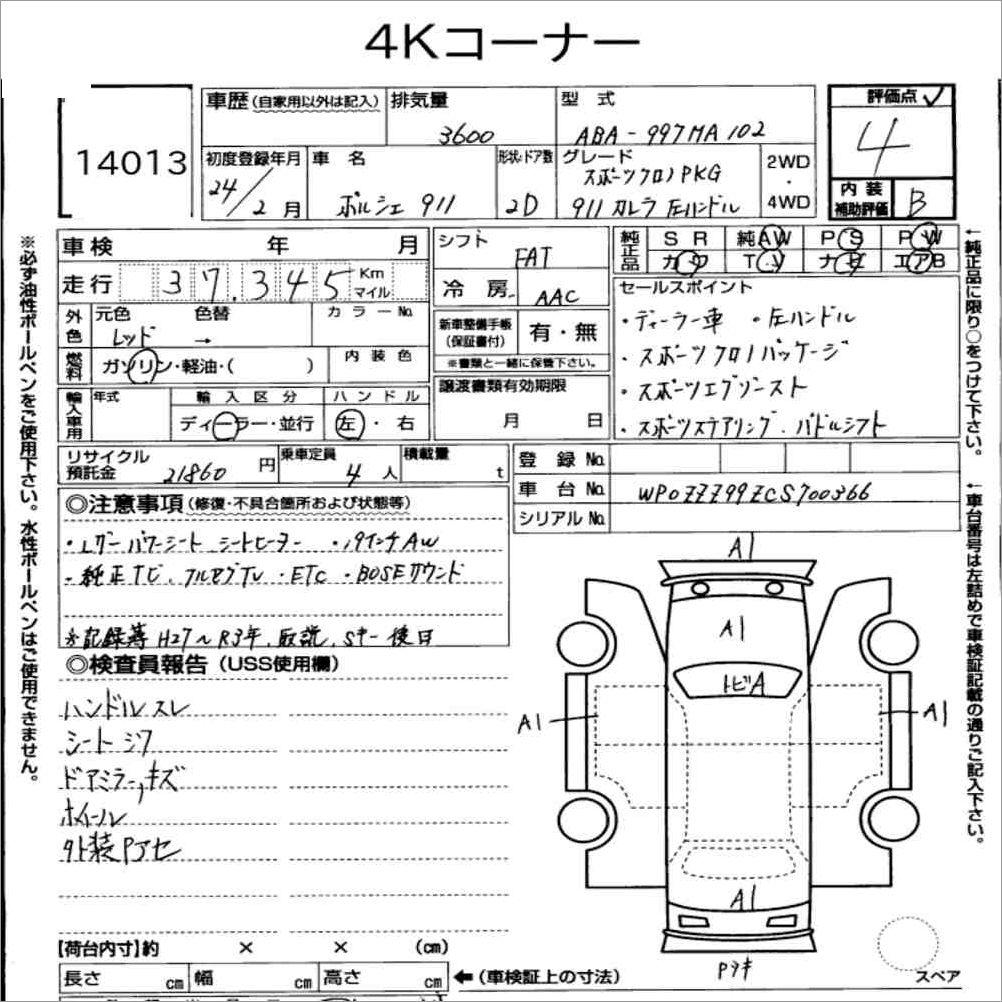 4Kコーナー
14013
車歴 (自家用以外は記入) 排気量 3600
型式 ABA-997MA102
評価点 4
初度登録年月 24/2月
車名 ポルシェ 911
形状・ドア数 2D
グレード スポーツクロノPKG
911 カレラ 左ハンドル
2WD・4WD
内装補助評価 B
車検 年 月
走行 37.345 Km マイル
シフト FAT
冷房 AAC
純正品 SR 純AW PS PW
カワ TV ナビ エアB
外色 元色 レッド 色替 → カラーNo.
燃料 ガソリン・軽油・( ) 内装色
新車整備手帳(保証書付) 有・無
※書類と一緒に保管下さい。
輸入車用 年式 輸入区分 ディーラー・並行 ハンドル 左・右
譲渡書類有効期限 月 日
セールスポイント
・ディーラー車 ・左ハンドル
・スポーツクロノパッケージ
・スポーツエグゾースト
・スポーツステアリング、パドルシフト
リサイクル預託金 21860円
乗車定員 4人
積載量 t
登録No.
車台No. WP0ZZZ99ZCS700366
シリアルNo.
◎注意事項(修復・不具合箇所および状態等)
・Lザーパワーシート シートヒーター ・19インチAW
・純正TV、フルセグTV ・ETC ・BOSEサウンド
※記録簿H27〜R3年、取説、Sキー後日
◎検査員報告(USS使用欄)
ハンドルスレ
シートシワ
ドアミラー,キズ
ホイール
外装Pアセ
A1
A1
トビA
A1
A1
A1
Pヌキ
スペア
【荷台内寸】約 × × (cm)
長さ cm 幅 cm 高さ cm ←(車検証上の寸法)
※必ず油性ボールペンをご使用下さい。水性ボールペンはご使用できません。
←純正品に限り○をつけて下さい。
←車台番号は左詰めで車検証記載の通りご記入下さい。